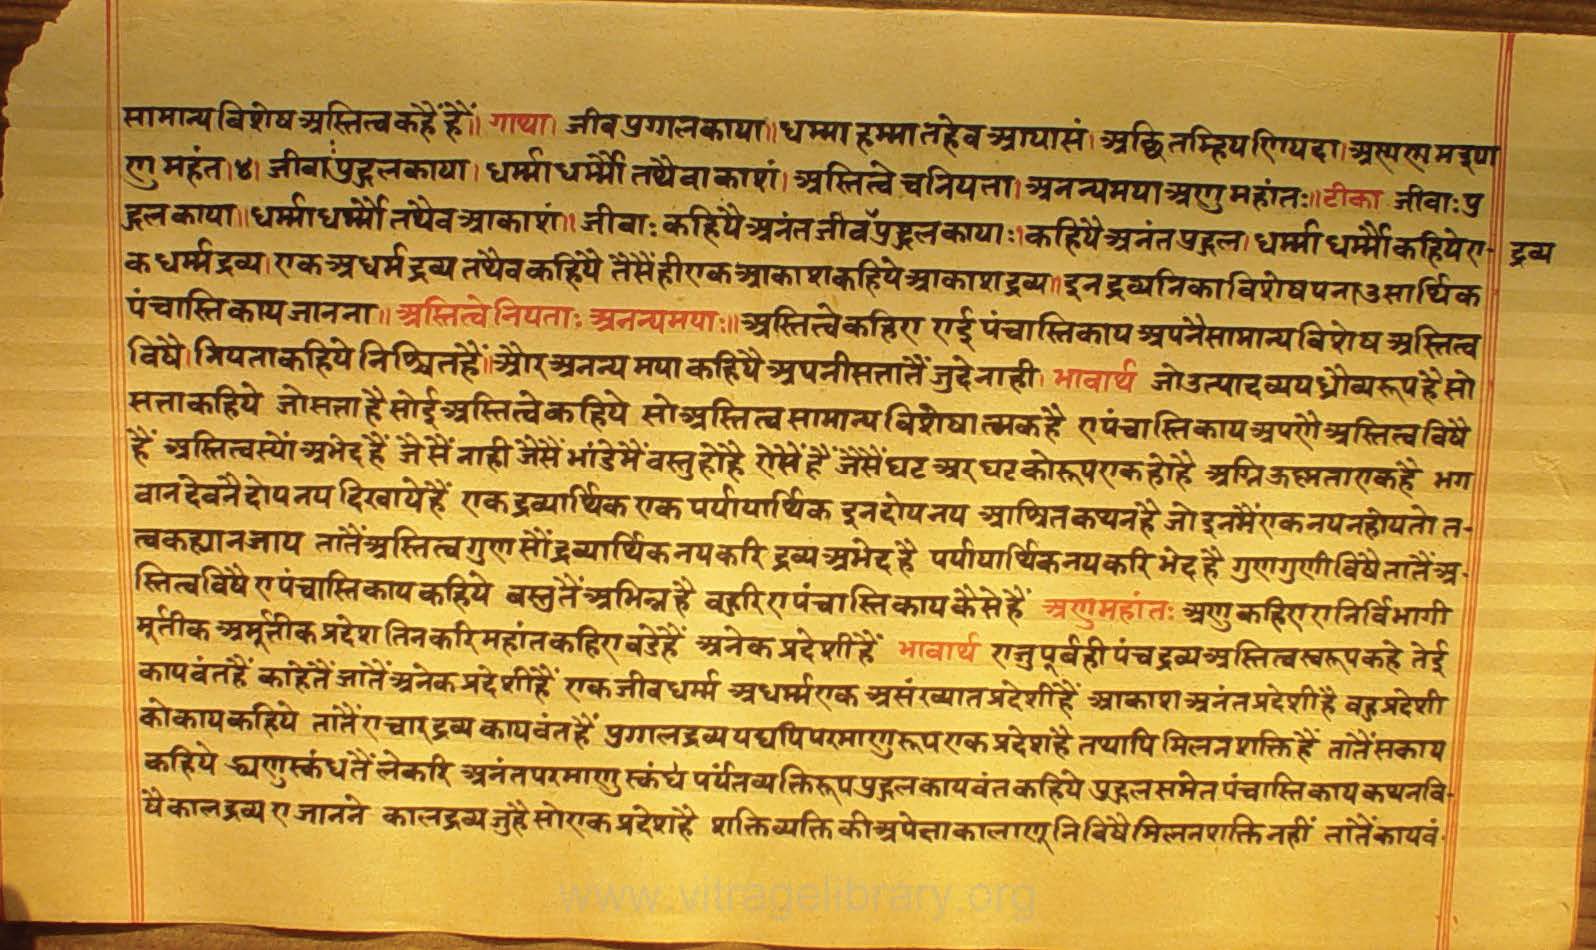 सामान्य विशेष अस्तित्व कहैं हैं॥ गाथा। जीव प्रगालकाया॥ धम्मा हम्मा तहेव आयासं। अच्छितम्हिय णियदा। अणण्णमइया
णु महंत।४। जीवा पुद्गलकाया। धर्म्माधर्म्मौ तथैवाकाशं। अस्तित्वे च नियता। अनन्यमया अणु महांतः॥ टीका जीवाः पु
द्गल काया॥ धर्म्माधर्म्मौ तथैव आकाशं॥ जीवाः कहियै अनंत जीव पुद्गलकायाः। कहियै अनंत पुद्गल। धर्म्माधर्म्मौ कहिये ए- द्रव्य
क धर्म्म द्रव्य। एक अधर्म द्रव्य तथैव कहियै तैसैंही एक आकाश कहिये आकाश द्रव्य॥ इन द्रव्यनिका विशेषपना उ सार्थिक
पंचास्तिकाय जानना॥ अस्तित्वे नियताः अनन्यमयाः॥ अस्तित्वे कहिए एई पंचास्तिकाय अपनै सामान्य विशेष अस्तित्व
विषै। नियता कहिये निश्चित हैं॥ और अनन्यमया कहियै अपनी सत्तातैं जुदे नाही। भावार्थ जो उत्पादव्ययध्रौव्यरूप है सो
सत्ता कहिये जो सत्ता है सोई अस्तित्वे कहिये सो अस्तित्व सामान्य विशेषात्मक है ए पंचास्तिकाय अपणै अस्तित्व विषै
हैं अस्तित्वस्यों अभेद हैं जैसैं नाही जैसैं भांडेमैं वस्तु हो है ऐसैं हैं जैसैं घट अर घटको रूप एक हो है अग्नि ऊष्मता एक है भग
वान देवनै दोय नय दिखाये हैं एक द्रव्यार्थिक एक पर्यायार्थिक इन दोय नय आश्रित कथन है जो इनमैं एक नय न होय तो त-
त्व कह्या न जाय तातैं अस्तित्व गुण सौं द्रव्यार्थिक नय करि द्रव्य अभेद है पर्यायार्थिक नय करि भेद है गुण गुणी विषै तातैं अ-
स्तित्व विषै ए पंचास्तिकाय कहिये वस्तुतैं अभिन्न है वहुरि ए पंचास्तिकाय कैसे हैं अणुमहांतः अणु कहिए ए निर्विभागी
मूर्तीक अमूर्तीक प्रदेश तिन करि महांत कहिए वडे हैं अनेक प्रदेशी हैं भावार्थ ए जु पूर्वही पंच द्रव्य अस्तित्व स्वरूप कहे तेई
कायवंत हैं काहेतैं जातैं अनेक प्रदेशी हैं एक जीव धर्म्म अधर्म्म एक असंख्यात प्रदेशी हैं आकाश अनंत प्रदेशी है वहु प्रदेशी
को काय कहिये तातैं ए च्चार द्रव्य कायवंत हैं पुगालद्रव्य यद्यपि परमाणु रूप एक प्रदेश है तथापि मिलन शक्ति हैं तातैं सकाय
कहिये द्व्यणुस्कंध तैं लेकरि अनंत परमाणु स्कंध पर्यंत व्यक्तिरूप पुद्गल कायवंत कहिये पुद्गल समेत पंचास्तिकाय कथन वि-
षै काल द्रव्य ए जानने कालद्रव्य जु है सो एक प्रदेश है शक्ति व्यक्ति की अपेक्षा कालाणूनि विषै मिलन शक्ति नहीं तातैं कायवं-
www.vitragelibrary.org